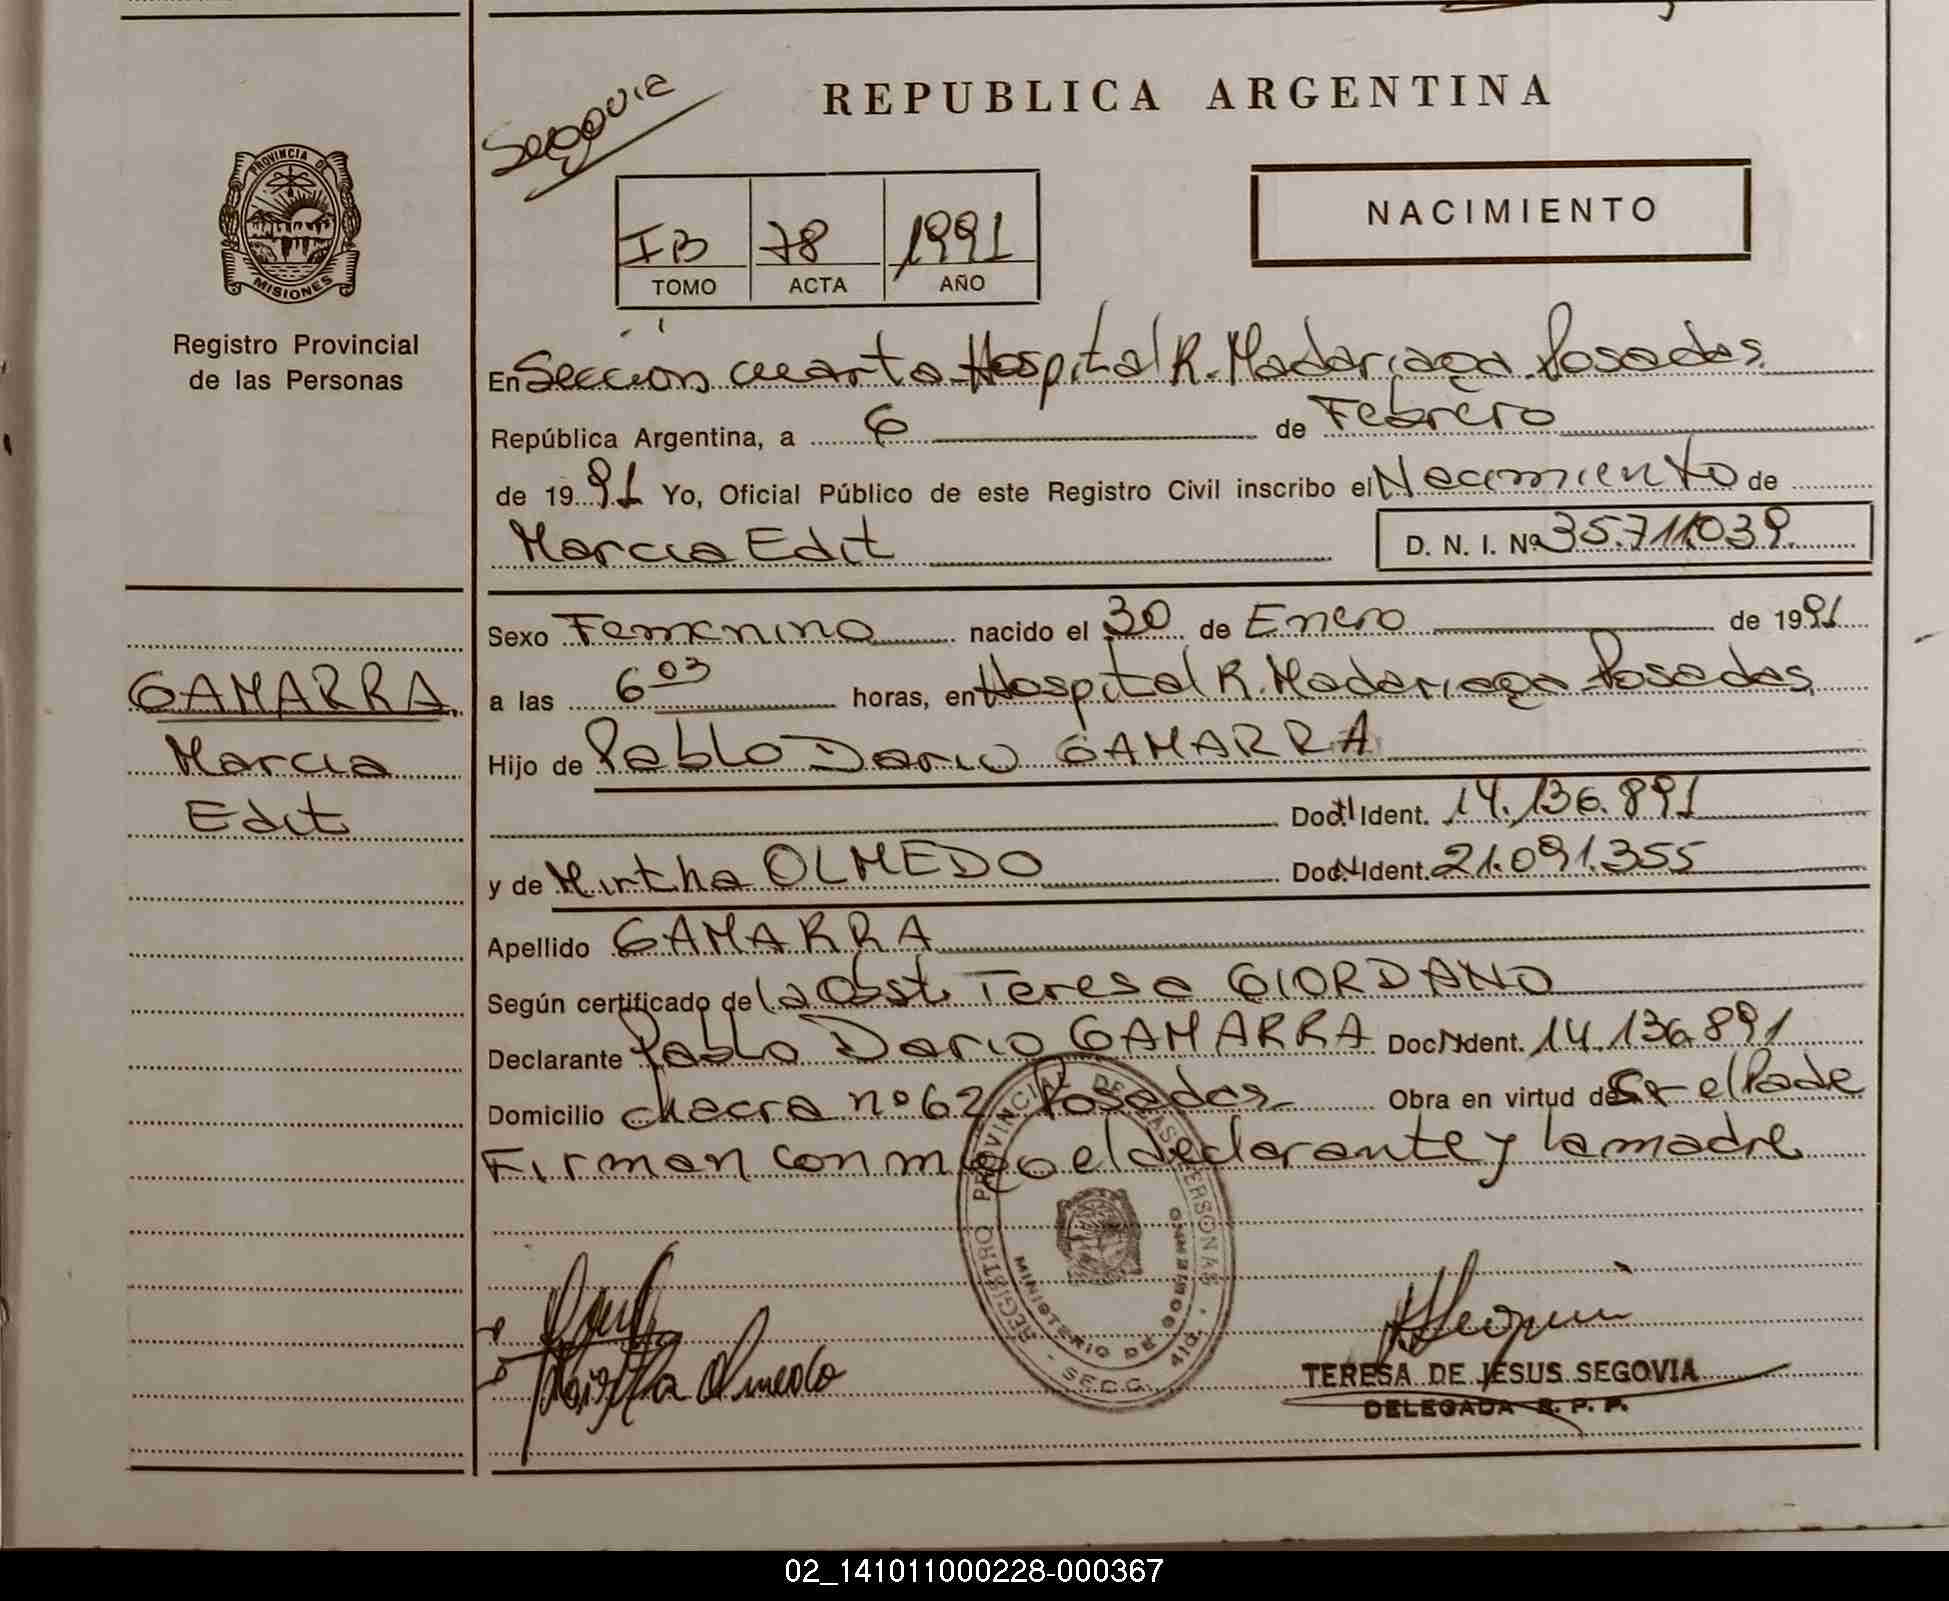 REPUBLICA ARGENTINA
Segovia
PROVINCIA DE
MISIONES
Registro Provincial
de las Personas
NACIMIENTO
IB 78 1991
TOMO ACTA AÑO
En Sección cuarta Hospital R. Madariaga Posadas
República Argentina, a 6 de Febrero
de 1991 Yo, Oficial Público de este Registro Civil inscribo el Nacimiento de
Marcia Edit D. N. I. Nº 35.711.039.
Sexo Femenino nacido el 30 de Enero de 1991
GAMARRA
Marcia
Edit
a las 6 03 horas, en Hospital R. Madariaga Posadas
Hijo de Pablo Dario GAMARRA
Doc. Ident. 14.136.891
y de Mirtha OLMEDO Doc. Ident. 21.091.355
Apellido GAMARRA
Según certificado de la Obst. Teresa GIORDANO
Declarante Pablo Dario GAMARRA Doc. Ident. 14.136.891
Domicilio chacra nº 62 Posadas Obra en virtud de Sr el Padre
Firman conmigo el declarante y la madre
REGISTRO PROVINCIAL DE LAS PERSONAS
MINISTERIO DE GOBIERNO
- SECC. 4ta. -
Mirtha Olmedo
TERESA DE JESUS SEGOVIA
DELEGADA R. P. P.
02_141011000228-000367